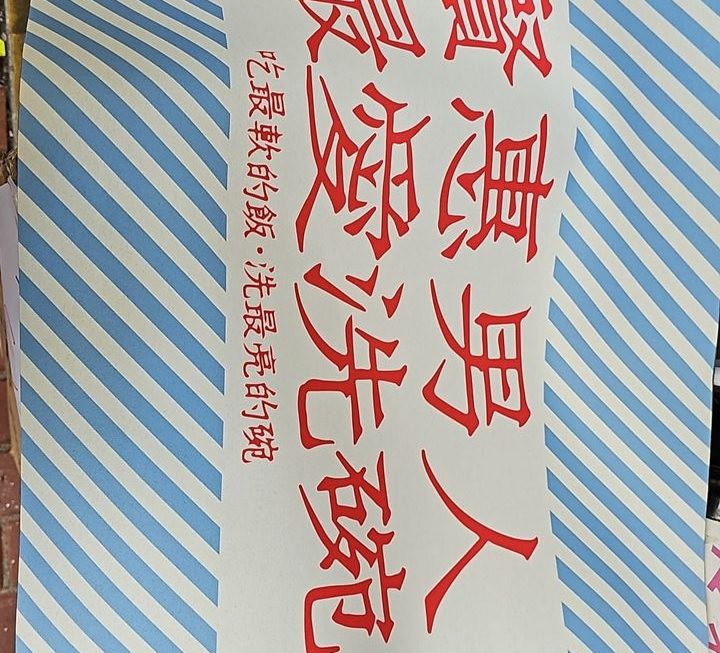 賢惠男人
最愛洗碗
吃最軟的飯·洗最亮的碗